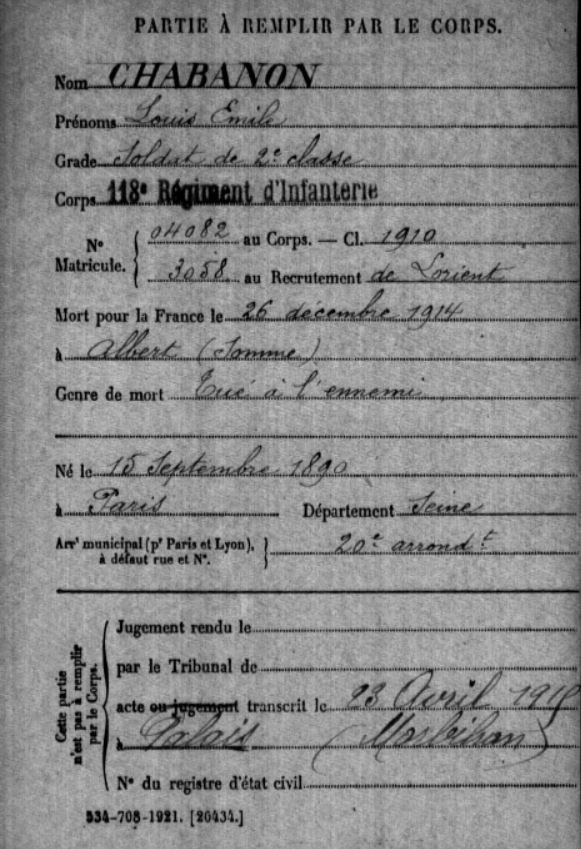 PARTIE À REMPLIR PAR LE CORPS.
Nom CHABANON
Prénoms Louis Emile
Grade Soldat de 2e classe
Corps 118e Régiment d'Infanterie
No Matricule. { 04082 au Corps. — Cl. 1910
3058 au Recrutement de Lorient
Mort pour la France le 26 décembre 1914
à Albert (Somme)
Genre de mort Tué à l'ennemi
Né le 15 Septembre 1890
à Paris Département Seine
Arrt municipal (pr Paris et Lyon), à défaut rue et No. } 20e arrondt
Cette partie n'est pas à remplir par le Corps.
Jugement rendu le
par le Tribunal de
acte ou jugement transcrit le 23 Avril
à Palais (Morbihan)
No du registre d'état civil
534-708-1921. [26434.]